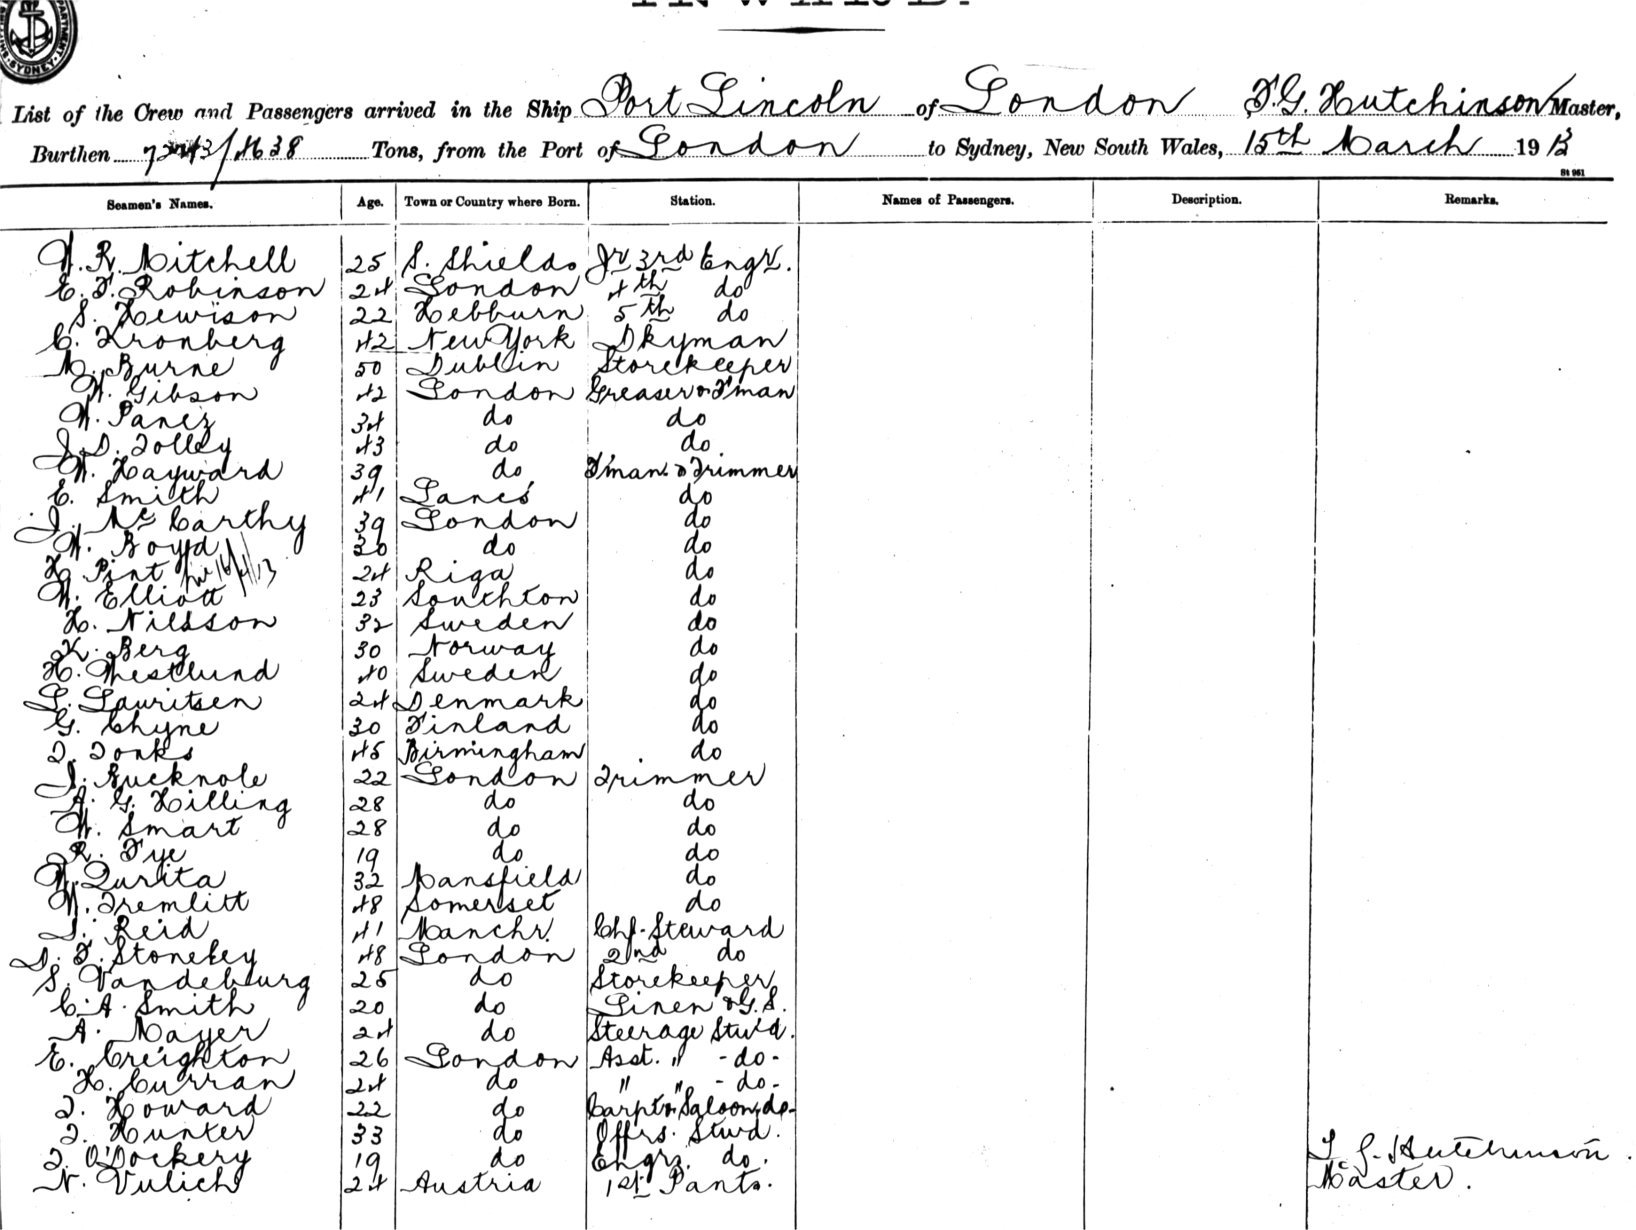 INWARD.
DEPARTMENT SYDNEY
List of the Crew and Passengers arrived in the Ship Port Lincoln of London F. G. Hutchinson Master,
Burthen 7243/4638 Tons, from the Port of London to Sydney, New South Wales, 15th March 1913
St 961
Seamen's Names. Age. Town or Country where Born. Station. Names of Passengers. Description. Remarks.
W. R. Mitchell 25 S. Shields Jr 3rd Engr.
E. F. Robinson 24 London 4th do
S. Hewison 22 Hebburn 5th do
C. Kronberg 42 New York Dkyman
M. Burne 50 Dublin Storekeeper
W. Gibson 42 London Greaser & F'man
W. 34 do do
J. D. Tolley 43 do do
W. Hayward 39 do F'man & Trimmer
C. Smith 41 Lancs do
J. McCarthy 39 London do
W. Boyd 30 do do
Pint 24 Riga do
W. Elliott 23 Southton do
H. Nilsson 32 Sweden do
K. Berg 30 Norway do
H. Westlund 40 Sweden do
L. Lauritsen 24 Denmark do
G. Chyne 30 Finland do
T. Tonks 45 Birmingham do
J. Bucknole 22 London Trimmer
A. G. Hilling 28 do do
W. Smart 28 do do
R. Fye 19 do do
W. Zurita 32 Mansfield do
W. Tremlitt 48 Somerset do
Reid 41 Manchr. Chf. Steward
F. Stonekey 48 London 2nd do
S. Vandeburg 25 do Storekeeper
C. A. Smith 20 do Linen & G. S.
A. Mayer 24 do Steerage Stwd.
E. Creighton 26 London Asst. " - do -
H. Curran 24 do " " - do -
T. Howard 22 do Saloon do -
T. Hunter 33 do Offrs. Stwd.
T. O'Dockery 19 do Engrs. do.
N. Vulich 24 Austria 1st Pants.
F. G. Hutchinson.
Master.